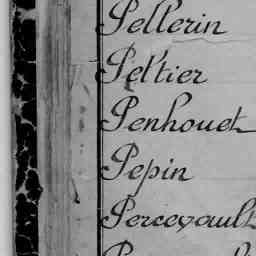 Pellerin
Peltier
Penhouet
Pepin
Percevault